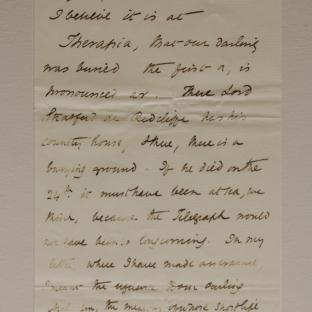 I believe it is at
Therapia, that our darling
was buried the first a, is
pronounced ar. There Lord
Stratford de Redcliffe has his
country house, & there, there is a
burying ground. If he died on the
24th it must have been at sea, we
think, because the Telegraph would
not have been so long coming. In my
letter, where I have made an erasure,
I meant the reference to our darling